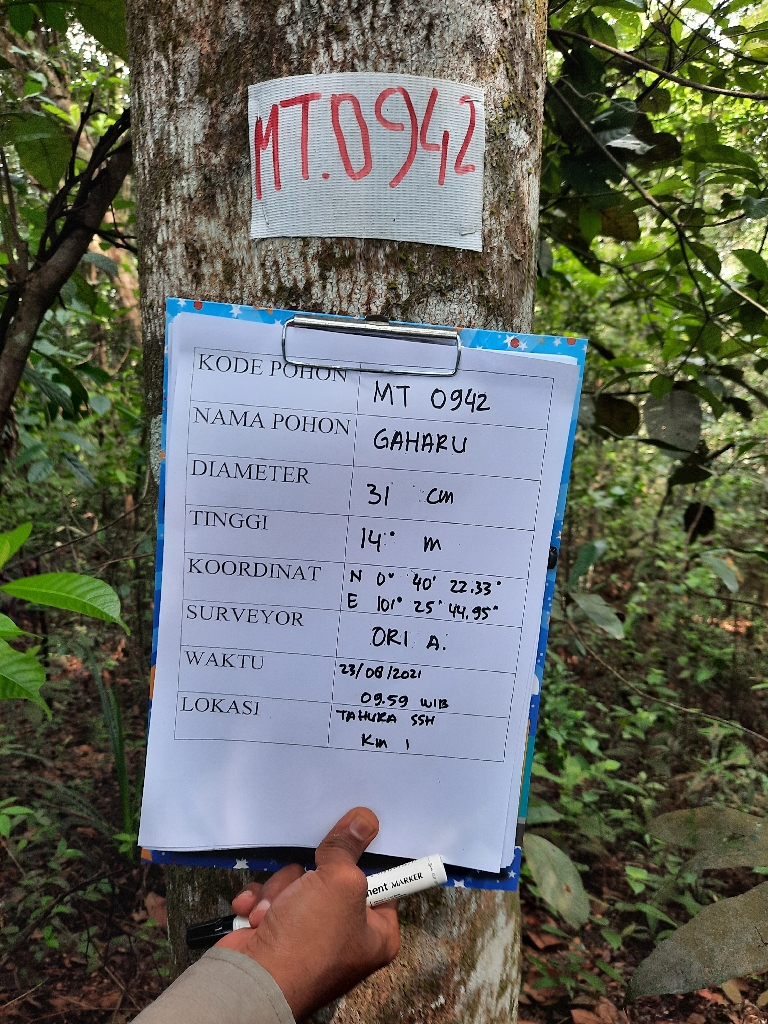 MT.0942
KODE POHON MT 0942
NAMA POHON GAHARU
DIAMETER 31 cm
TINGGI 14 m
KOORDINAT N 0° 40' 22.33"
E 101° 25' 44.95"
SURVEYOR ORI A.
WAKTU 23/08/2021
09.59 WIB
LOKASI TAHURA SSH
Km 1
MARKER